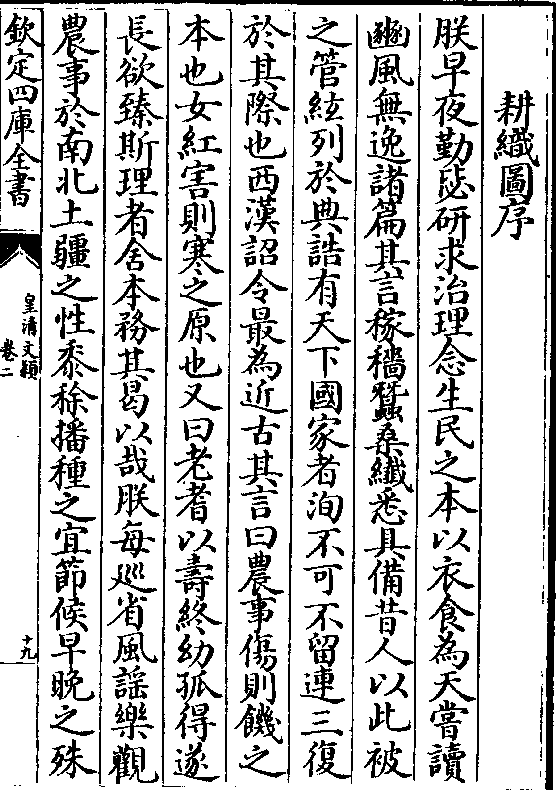 耕織圖序
朕早夜勤毖研求治理念生民之本以衣食為天嘗讀
豳風無逸諸篇其言稼穡蠶桑纖悉具備昔人以此被
之管絃列於典誥有天下國家者洵不可不留連三復
於其際也西漢詔令最為近古其言曰農事傷則饑之
本也女紅害則寒之原也又曰老耆以壽終幼孤得遂
長欲臻斯理者舍本務其曷以哉朕每巡省風謠樂觀
農事於南北土疆之性黍稌播種之宜節候早晚之殊
欽定四庫全書
皇清文穎
卷二
十九